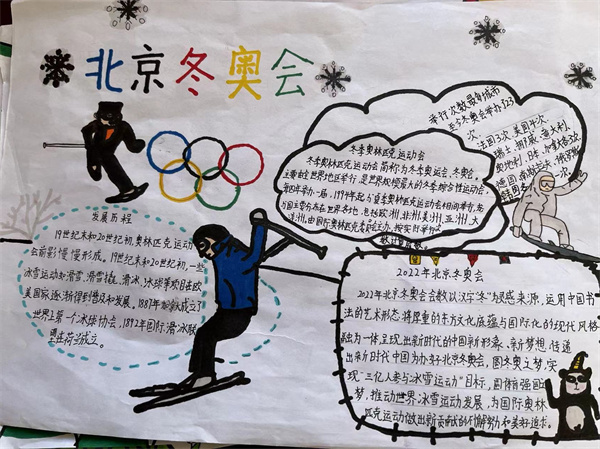 北京冬奥会
举行次数最多城市
至今冬奥会举办过23
次
法国3次,美国4次,
瑞士,挪威,意大利,
奥地利,日本,加拿大各2次
冬季奥林匹克运动会
冬季奥林匹克运动会简称为冬季奥运会,冬奥会,
主要由世界地区举行,是世界规模最大的冬季综合性运动会,
每四年办一届,1994年起与夏季奥林匹克运动会相间举行,参
与国主要分布在世界各地,包括欧洲,非洲,美洲,亚洲,大
洋洲,由国际奥林匹克委员会主办,按实际举行
发展历程
19世纪末和20世纪初,奥林匹克运动
会前影慢慢形成。19世纪末和20世纪初,一些
冰雪运动如滑雪,滑雪橇,滑冰,冰球等项目在欧
美国际逐渐得到普及和发展。1887年挪威成立了
世界上第一个冰球协会,1892年国际滑冰联
盟在荷兰成立。
2022年北京冬奥会
2022年北京冬奥会会数以汉字"冬"为灵感来源,运用中国书
法的艺术形态,将厚重的东方文化底蕴与国际化的现代风格
融为一体,呈现出新时代的中国新形象、新梦想,传递
出新时代中国为办好北京冬奥会,圆冬奥之梦,实
现"三亿人参与冰雪运动"目标,圆体育强国
梦,推动世界冰雪运动发展,为国际奥林
匹克运动做出新贡献的不懈努力和美好追求。